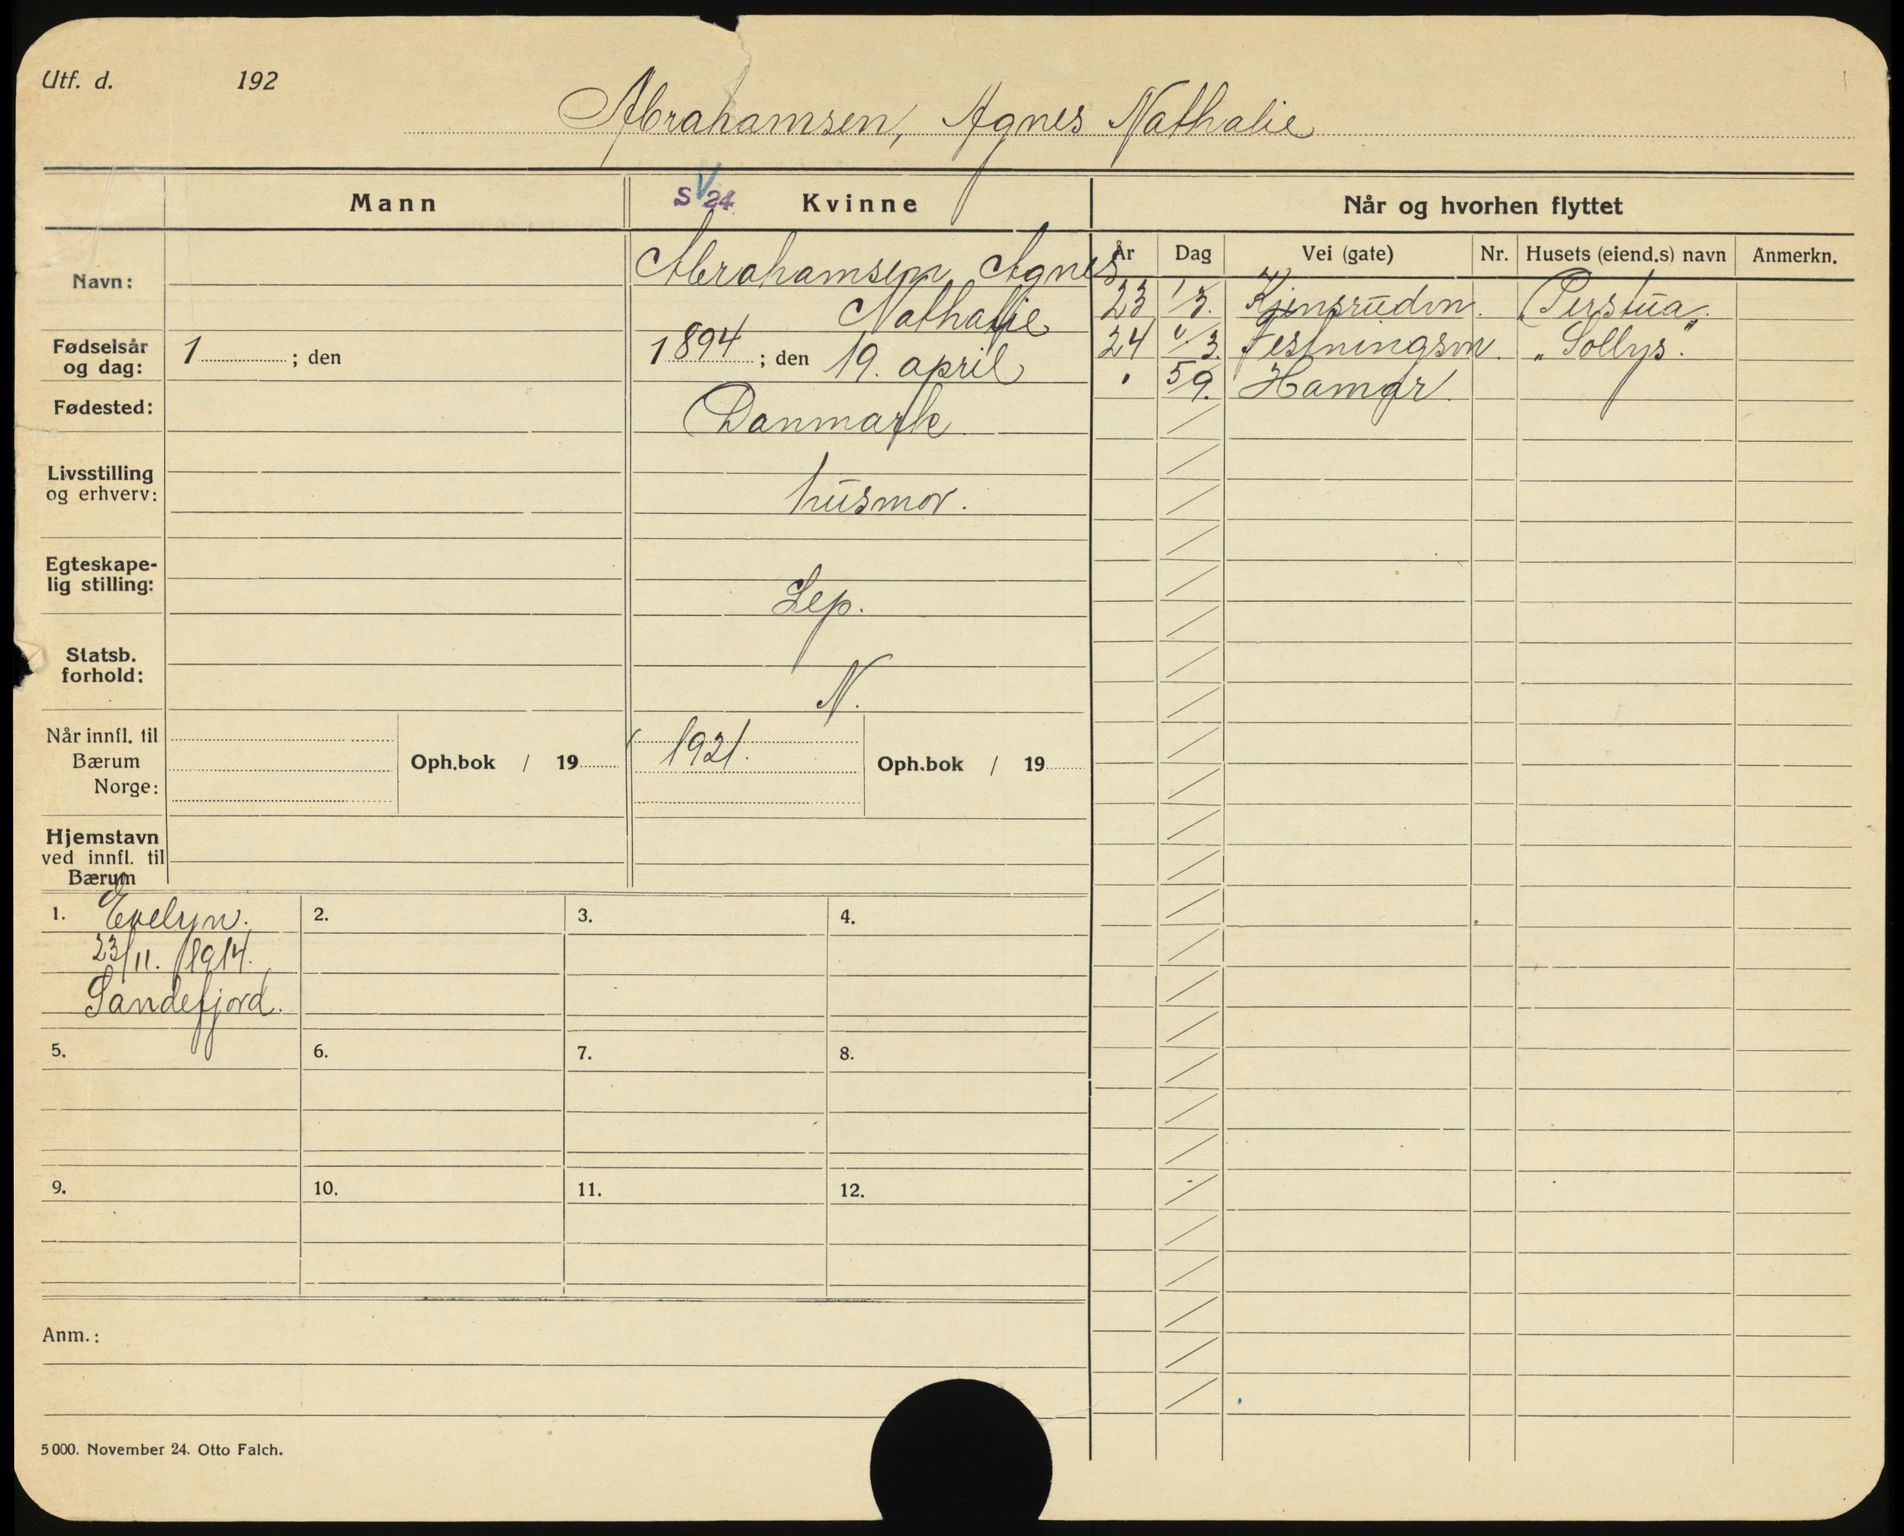 Utf. d. 192
Abrahamsen, Agnes Nathalie
Mann
S V 24
Kvinne
Når og hvorhen flyttet
År Dag Vei (gate) Nr. Husets (eiend.s) navn Anmerkn.
Navn:
Abrahamsen, Agnes
Nathalie
23 1/3. Kjensrudvn. "Perstua".
24 1/3. Festningsvn. "Sollys".
" 5/9. Hamar.
Fødselsår
og dag:
1 ; den
1894 ; den 19. april
Fødested:
Danmark
Livsstilling
og erhverv:
husmor.
Egteskape-
lig stilling:
Sep.
Statsb.
forhold:
N.
Når innfl. til
Bærum
Norge:
Oph.bok / 19
1921.
Oph.bok / 19
Hjemstavn
ved innfl. til
Bærum
1. Evelyn.
23/11. 1914.
Sandefjord.
2.
3.
4.
5.
6.
7.
8.
9.
10.
11.
12.
Anm.:
5000. November 24. Otto Falch.